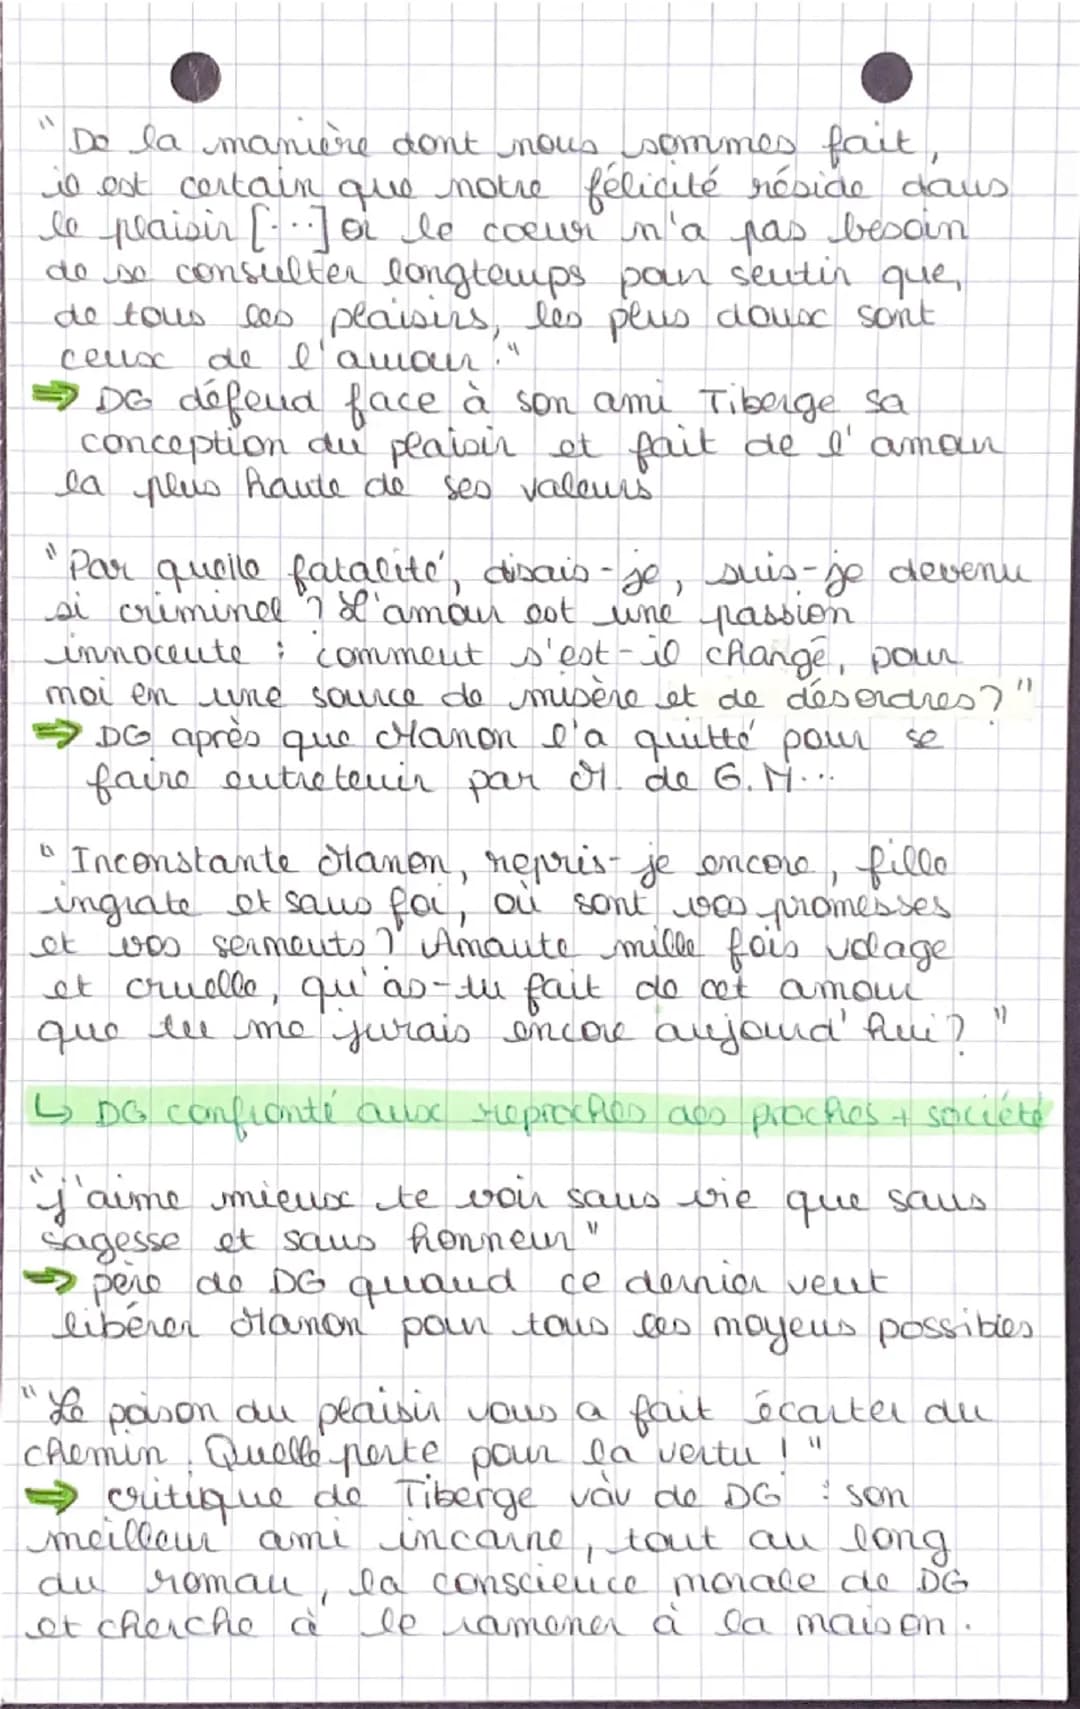 "De la manière dont nous sommes fait,
il est certain que notre félicité réside dans
le plaisir [...] or le coeur n'a pas besoin
de se consulter longtemps pour sentir que,
de tous les plaisirs, les plus doux sont
ceux de l'amour."
⇒ DG défend face à son ami Tiberge sa
conception du plaisir et fait de l'amour
la plus haute de ses valeurs
"Par quelle fatalité, disais-je, suis-je devenu
si criminel ? L'amour est une passion
innocente ; comment s'est-il changé, pour
moi en une source de misère et de désordres ?"
⇒ DG après que Manon l'a quitté pour se
faire entretenir par M. de G.M...
"Inconstante Manon, repris-je encore, fille
ingrate et sans foi, où sont vos promesses
et vos serments ? Amante mille fois volage
et cruelle, qu'as-tu fait de cet amour
que tu me jurais encore aujourd'hui ? "
↳ DG confronté aux reproches des proches + société
"j'aime mieux te voir sans vie que sans
sagesse et sans honneur"
⇒ père de DG quand ce dernier veut
libérer Manon pour tous les moyens possibles
"Le poison du plaisir vous a fait écarter du
chemin. Quelle perte pour la vertu ! "
⇒ critique de Tiberge vàv de DG : son
meilleur ami incarne, tout au long
du roman, la conscience morale de DG
et cherche à le ramener à la maison.